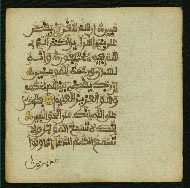 مبين إن هذا القرءان يقص
على بني إسرائيل أكثر الذي
هم فيه يختلفون وإنه
لهدى ورحمة للمؤمنين
إن ربك يقضي بينهم بحكمه
وهو العزيز العليم فتوكل
على الله إنك على الحق المبين
إنك لا تسمع الموتى ولا
تسمع الصم الدعاء إذا ولوا
مدبرين